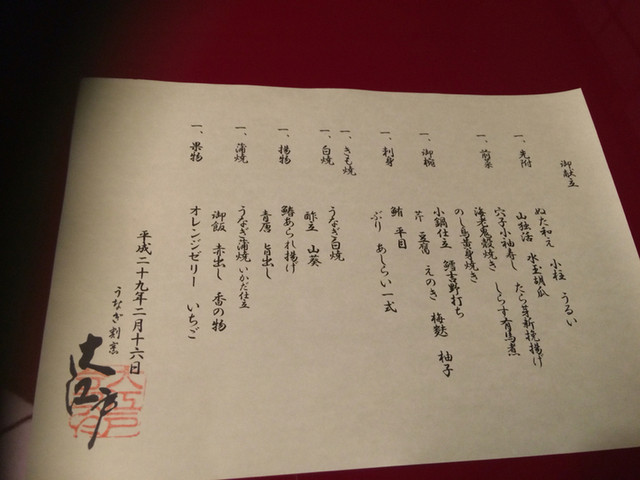 御献立
一、先附
ぬた和え 小柱 うるい
山独活 水玉胡瓜
たら芽新挽揚げ
一、前菜
穴子小袖寿し しらす有馬煮
海老鬼殻焼き
のし鳥黄身焼き
一、御椀
小鍋仕立 鱈吉野打ち
芹 豆富 えのき 梅麩 柚子
一、刺身
鮪 平目
ぶり あしらい一式
一、きも焼
一、白焼
うなぎ白焼
酢立 山葵
一、揚物
鰆あられ揚げ
青唐 旨出し
一、蒲焼
うなぎ蒲焼 いかだ仕立
御飯 赤出し 香の物
一、果物
オレンジゼリー いちご
平成二十九年二月十六日
うなぎ割烹
大江戸